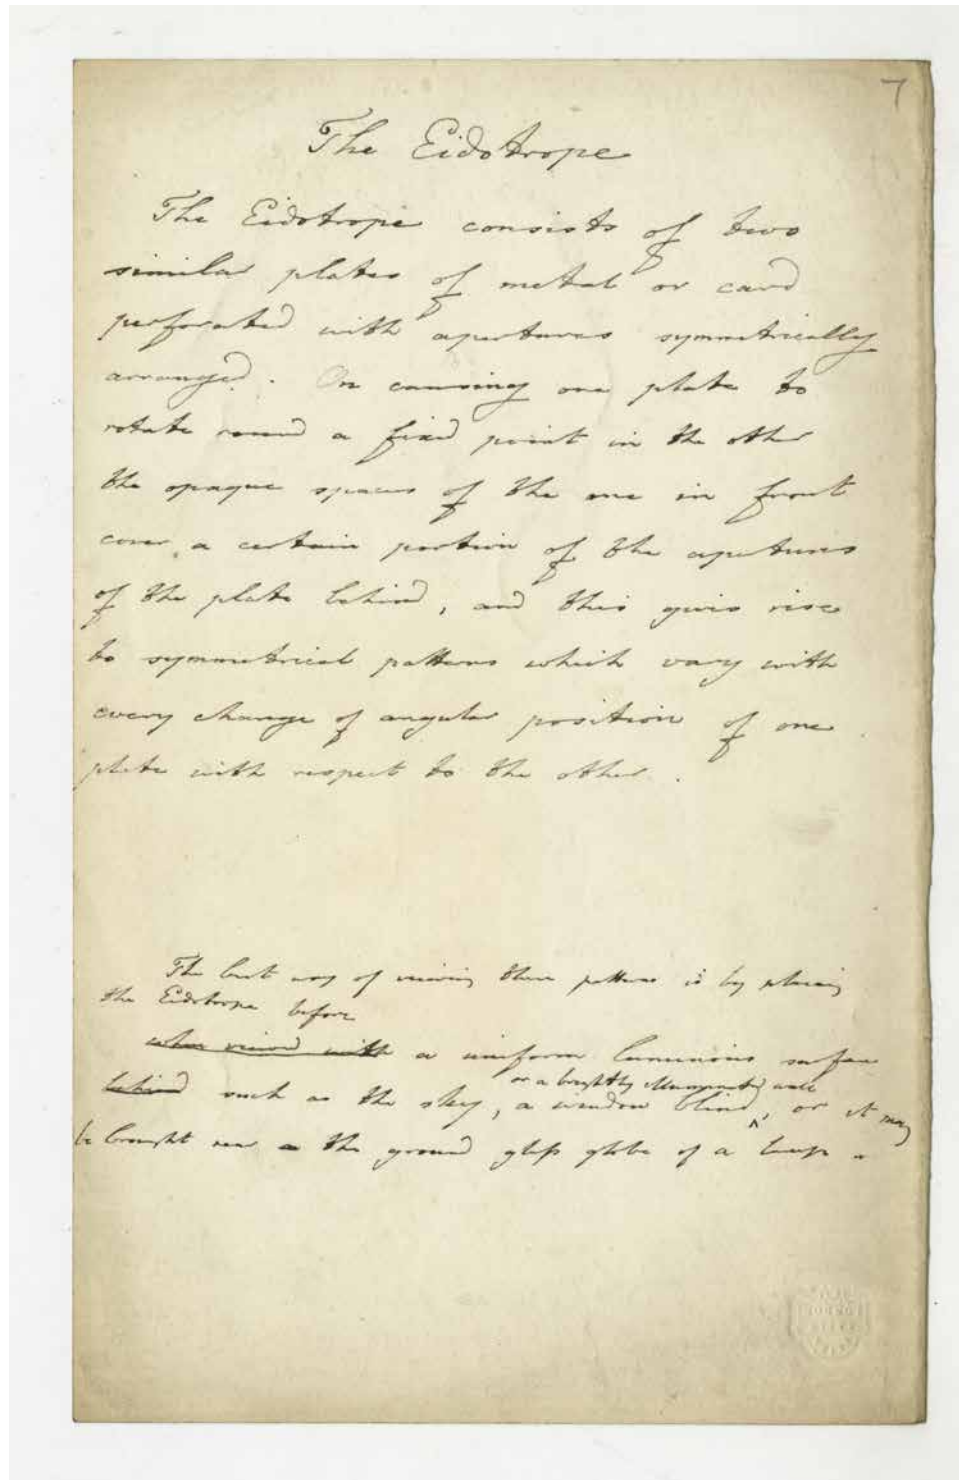 7
The Eidotrope
The Eidotrope consists of two
similar plates of metal or card
perforated with apertures symmetrically
arranged. On causing one plate to
rotate round a fixed point in the other
the opaque spaces of the one in front
cover a certain portion of the apertures
of the plate behind, and this gives rise
to symmetrical patterns which vary with
every change of angular position of one
plate with respect to the other.
The best way of viewing these patterns is by placing
the Eidotrope before
when viewed with a uniform luminous surface
or a brightly illuminated wall
behind such as the sky, a window blind, or it may
be brought near the ground glass globe of a lamp.